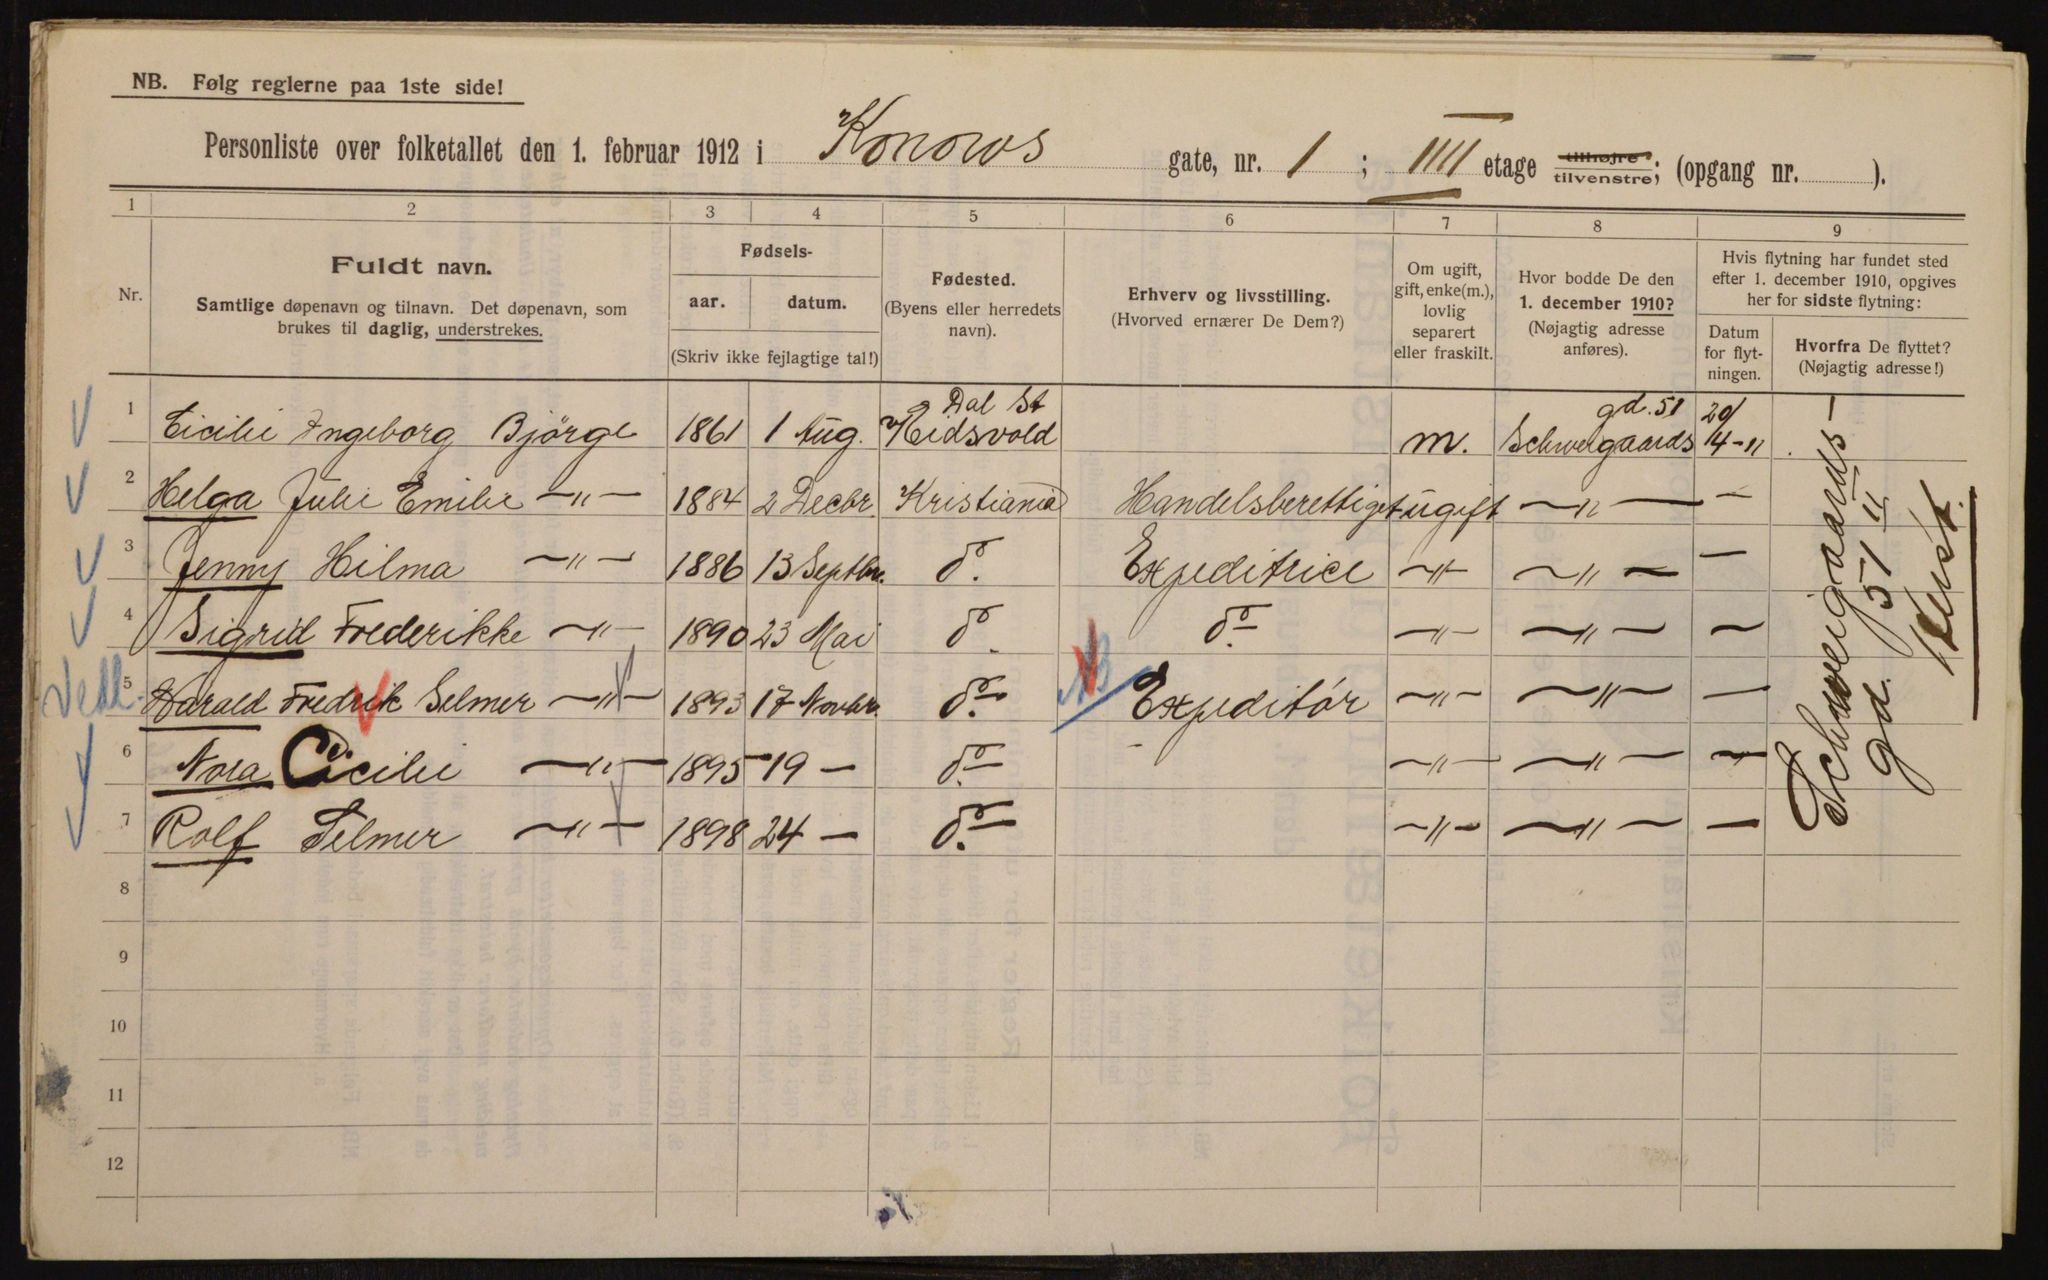 NB. Følg reglerne paa 1ste side!
Personliste over folketallet den 1. februar 1912 i Konows gate, nr. 1 ; IIII etage tilhøjre tilvenstre; (opgang nr. ).
1 2 3 4 5 6 7 8 9
Nr.
Fuldt navn.
Samtlige døpenavn og tilnavn. Det døpenavn, som
brukes til daglig, understrekes.
Fødsels-
aar. datum.
(Skriv ikke fejlagtige tal!)
Fødested.
(Byens eller herredets
navn).
Erhverv og livsstilling.
(Hvorved ernærer De Dem?)
Om ugift,
gift, enke(m.),
lovlig
separert
eller fraskilt.
Hvor bodde De den
1. december 1910?
(Nøjagtig adresse
anføres).
Hvis flytning har fundet sted
efter 1. december 1910, opgives
her for sidste flytning:
Datum
for flyt-
ningen.
Hvorfra De flyttet?
(Nøjagtig adresse!)
Dal St gd. 51 20/
1 Cicilie Ingeborg Bjørge 1861 1 Aug. Eidsvold m. Schweigaards 4-11
2 Helga Julie Emilie -"- 1884 2 Decbr. Kristiania Handelsberettiget ugift -"- -
3 Jenny Hilma -"- 1886 13 Septbr. do. Expeditrice -"- -"- -
4 Sigrid Frederikke -"- 1890 23 Mai do. do -"- -"- -
5 Harald Fredrik Selmer -"- 1893 17 Novbr. do. NB Expeditør -"- -"- -
6 Nora Cicilie -"- 1895 19 - do. -"- -"- -
7 Rolf Selmer -"- 1898 24 - do. -"- -"- -
8
9
10
11
12
Schweigaards
gd. 51 II